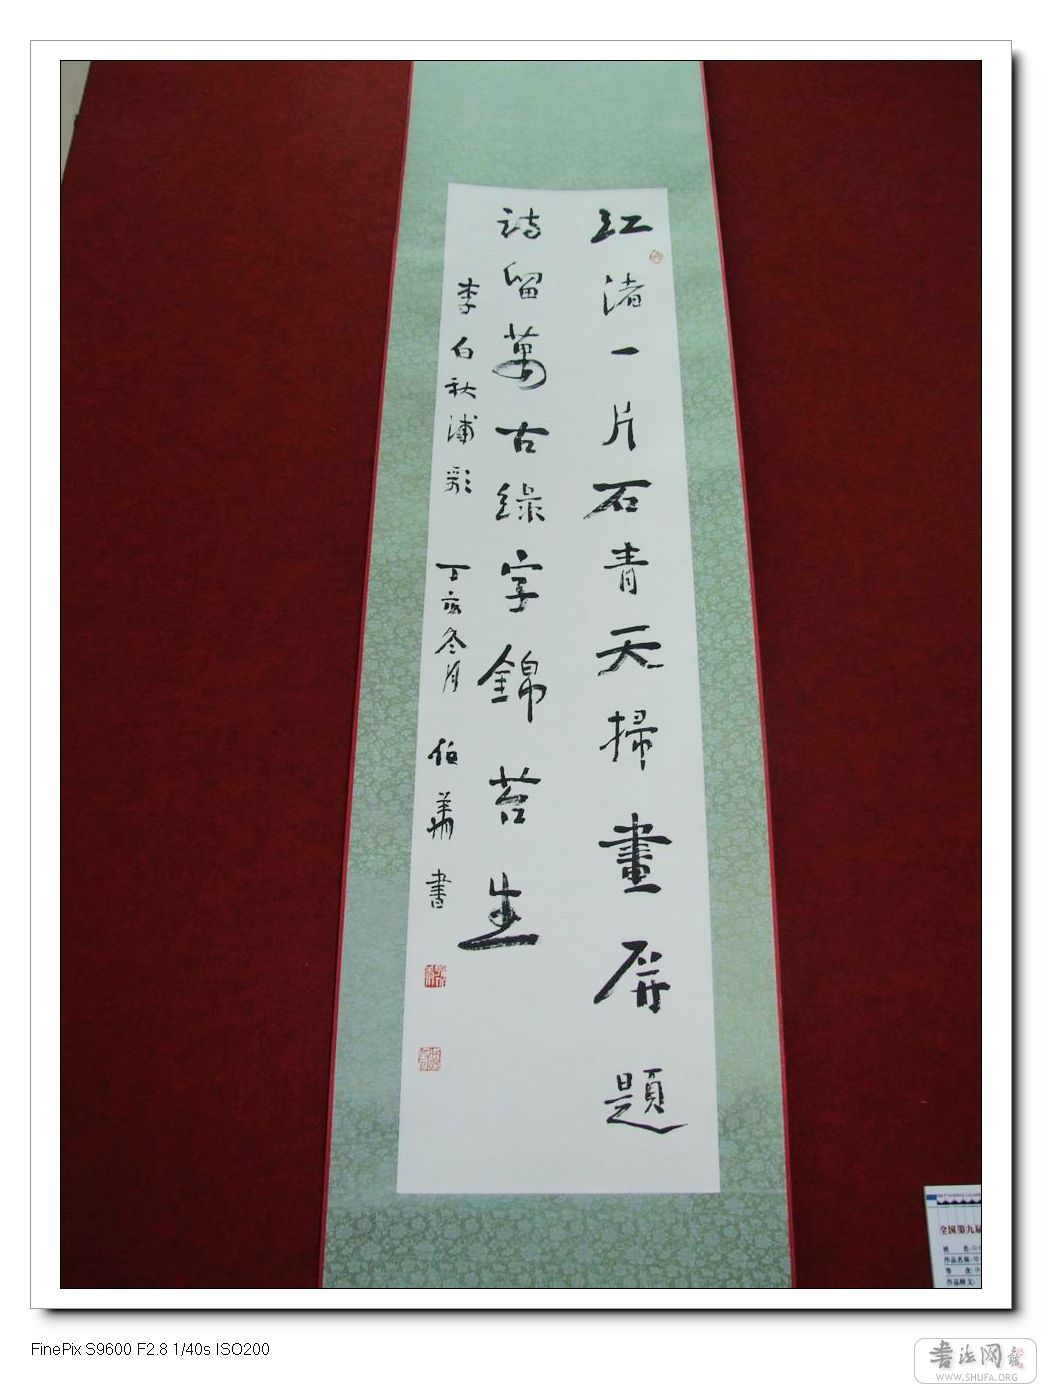 江渚一片石青天掃畫屏題
詩留萬古綠字錦苔生
李白秋浦歌 丁亥冬月 伯 書
全国第九届
姓 名:
作品名称:
等 次:
作品释文:
FinePix S9600 F2.8 1/40s ISO200
書法网
WWW.SHUFA.ORG